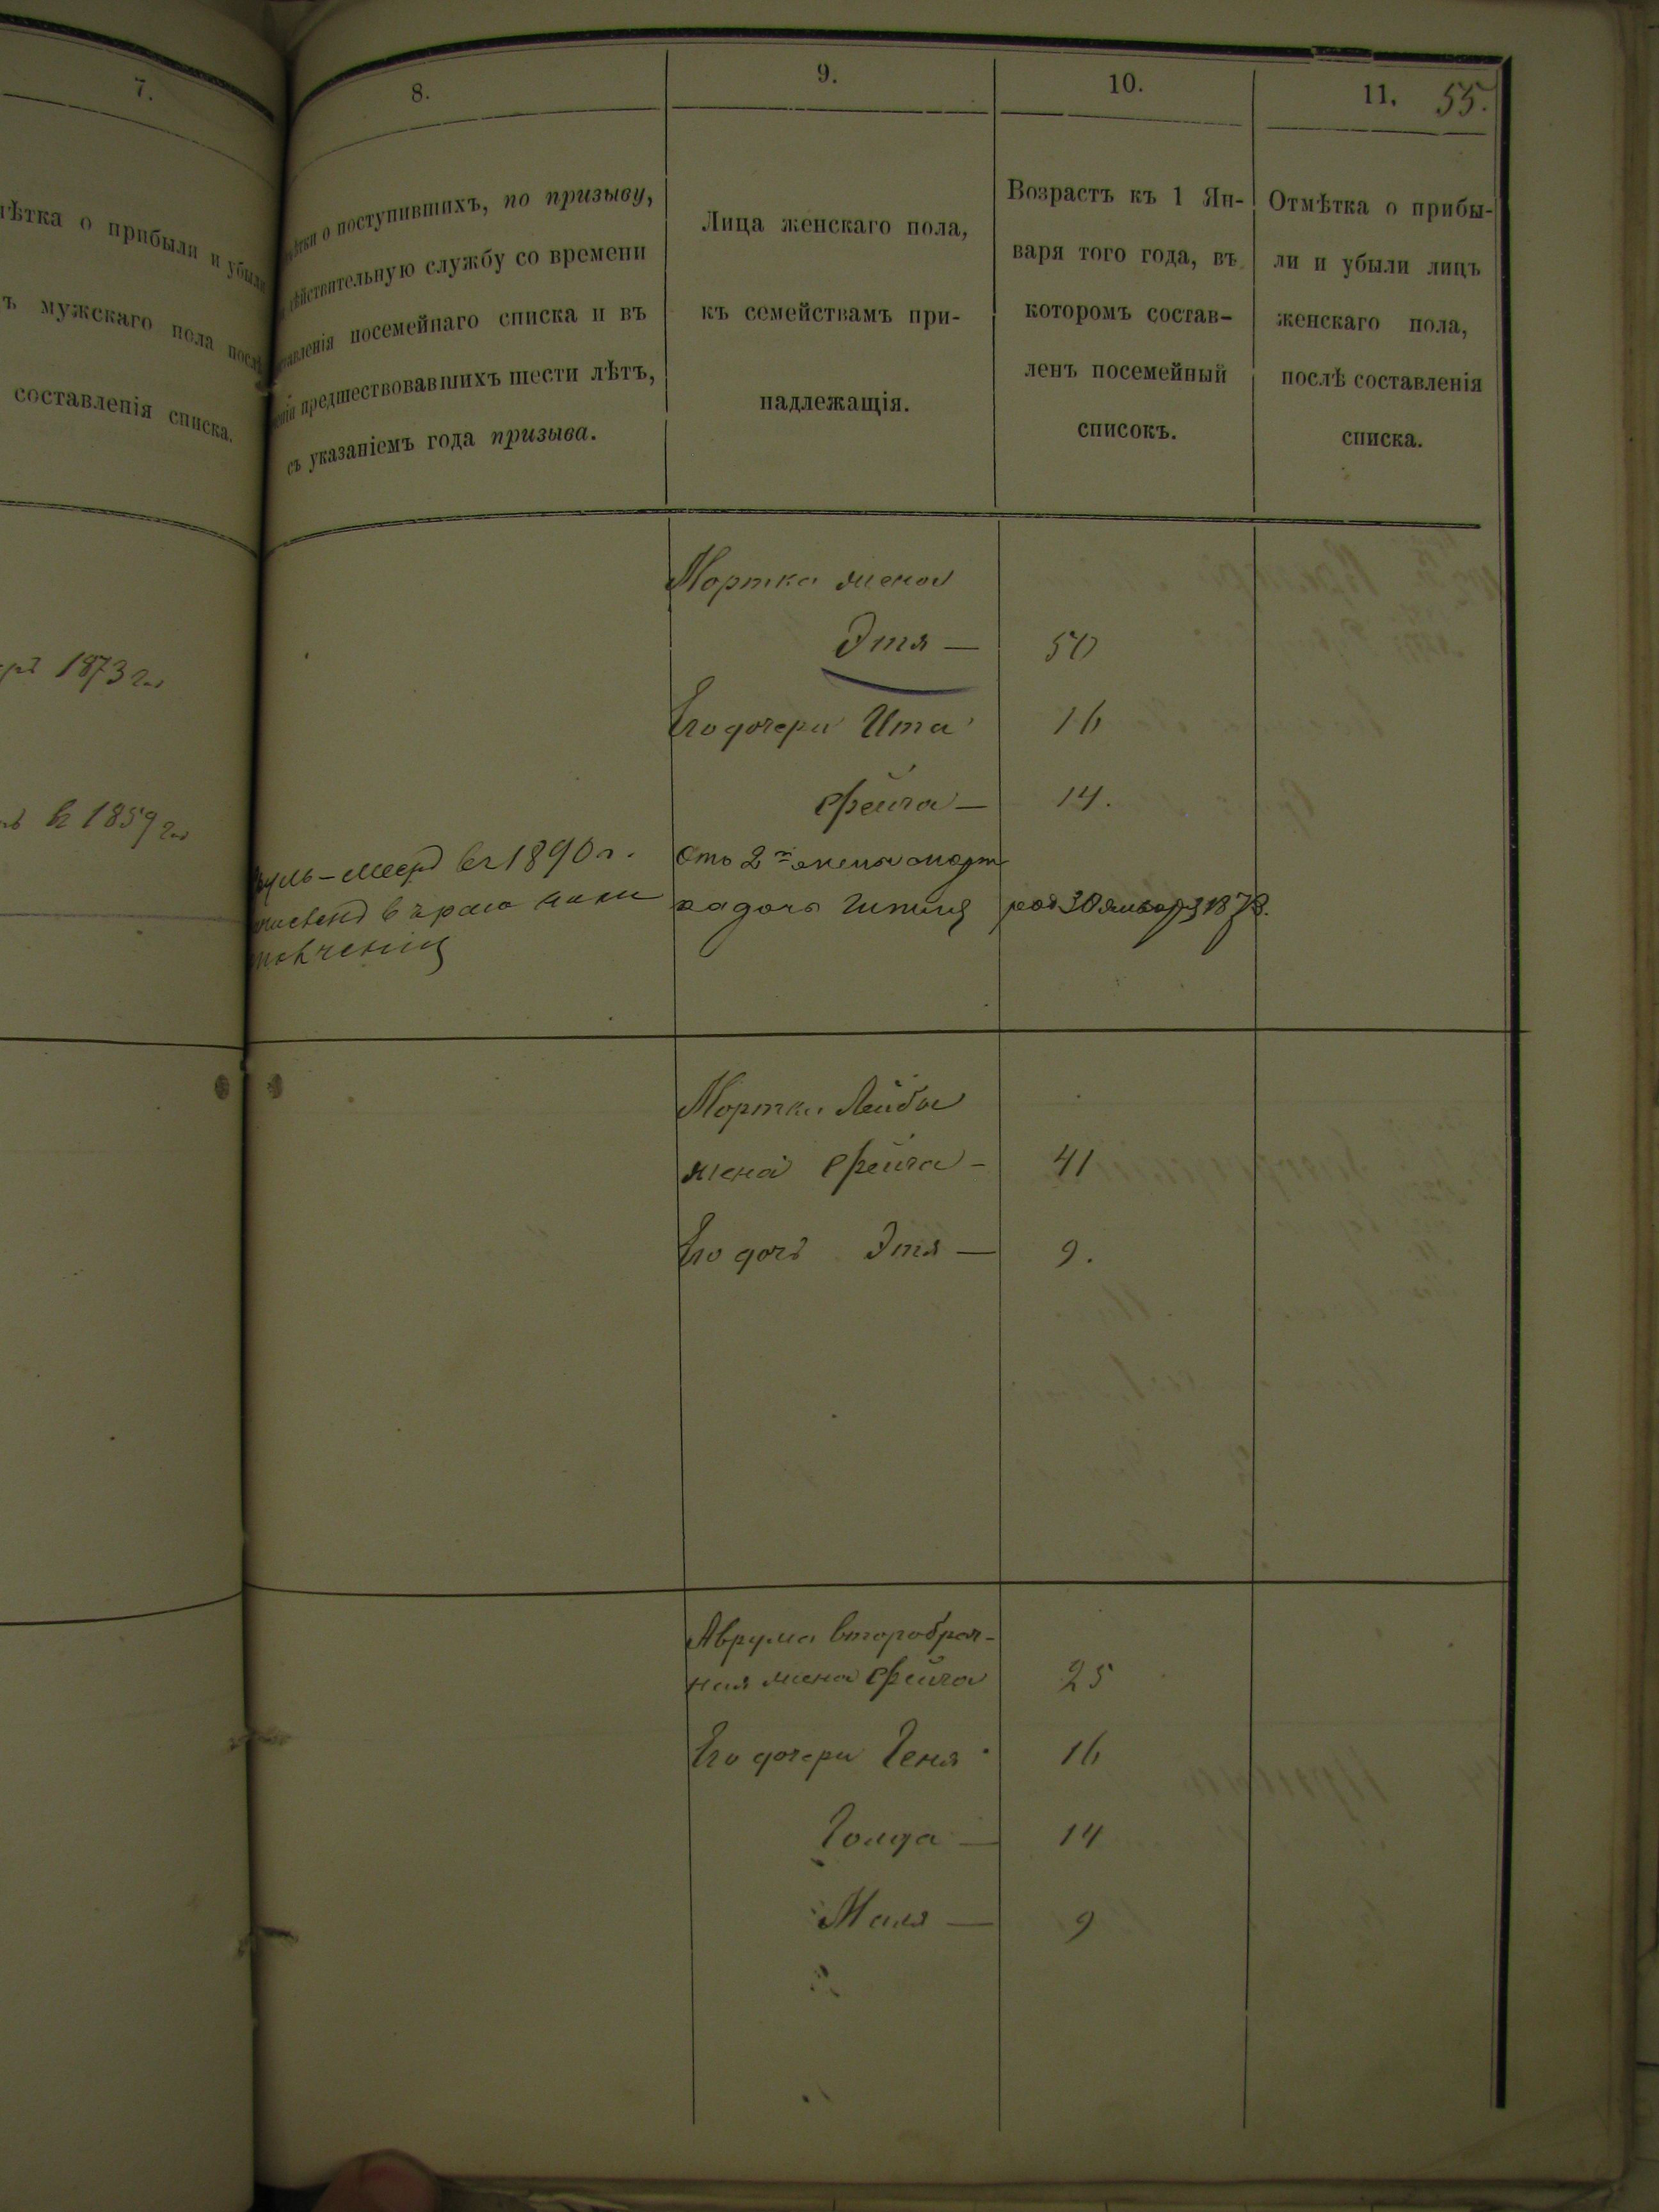 7.
о прибыли и убыли
мужскаго пола послѣ
составленія списка.
1873 г.
въ 1859 г.
8.
о поступившихъ, по призыву,
дѣйствительную службу со времени
посемейнаго списка и въ
предшествовавшихъ шести лѣтъ,
съ указаніемъ года призыва.
въ 1890 г.
9.
Лица женскаго пола,
къ семействамъ при-
надлежащія.
10.
Возрастъ къ 1 Ян-
варя того года, въ
которомъ состав-
ленъ посемейный
списокъ.
11. 55.
Отмѣтка о прибы-
ли и убыли лицъ
женскаго пола,
послѣ составленія
списка.
Мортка жена
Этя — 50
Его дочери Ита 16
Фейга — 14.
Отъ 2й жены Морт
ка дочь род 30 января 1878.
Мортки Лейбы
жена Фейга — 41
Его дочь Этя — 9.
Аврума второбрач-
ная жена Фейга 25
Его дочери Геня 16
Голда — 14
Маля — 9